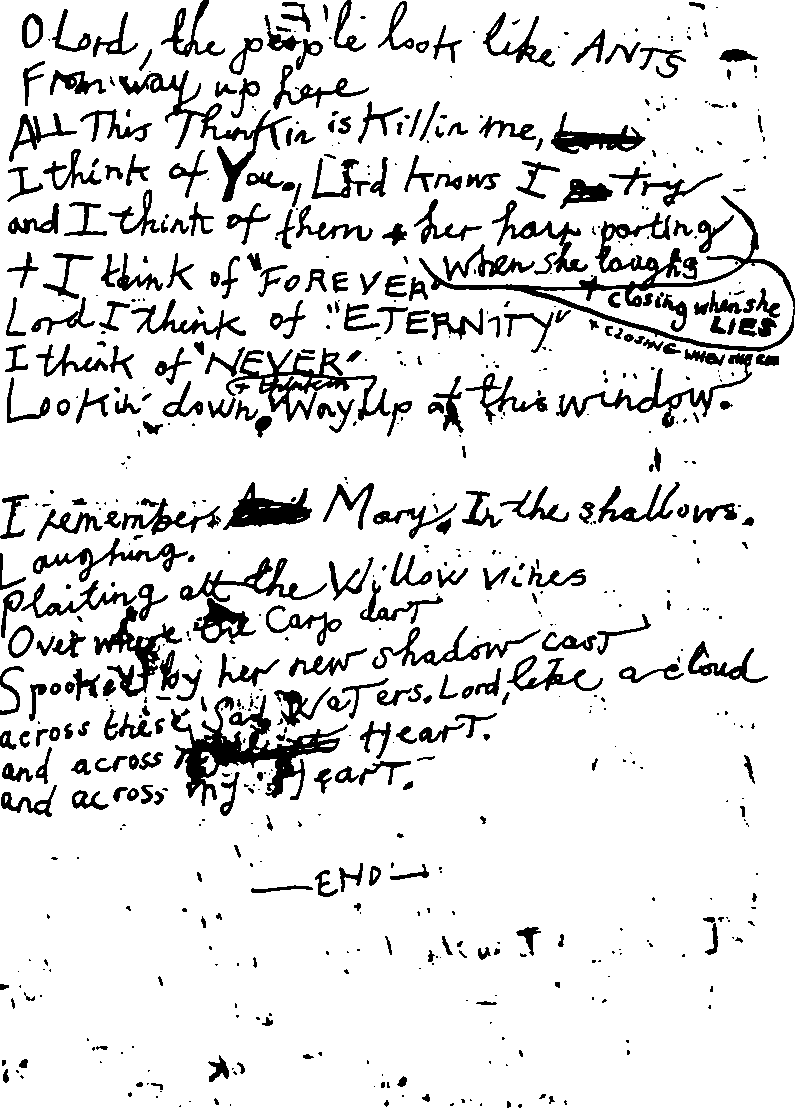 O Lord, the people look like ANTS
From way up here
ALL This Thinkin is Killin me,
I think of You., Lord knows I try
and I think of them + her hair parting
when she laughs
+ I think of "FOREVER"
+ closing when she LIES
Lord I think of "ETERNITY"
+ CLOSING WHEN SHE
I think of "NEVER"
+ thinkin
Lookin' down. Way Up at this window.
I remembers Mary. In the shallows.
Laughing.
Plaiting all the Willow vines
Over where the Carp dart
Spooked by her new shadow cast
across these Sad Waters. Lord, like a cloud
and across Heart.
and across my Heart.
—END—